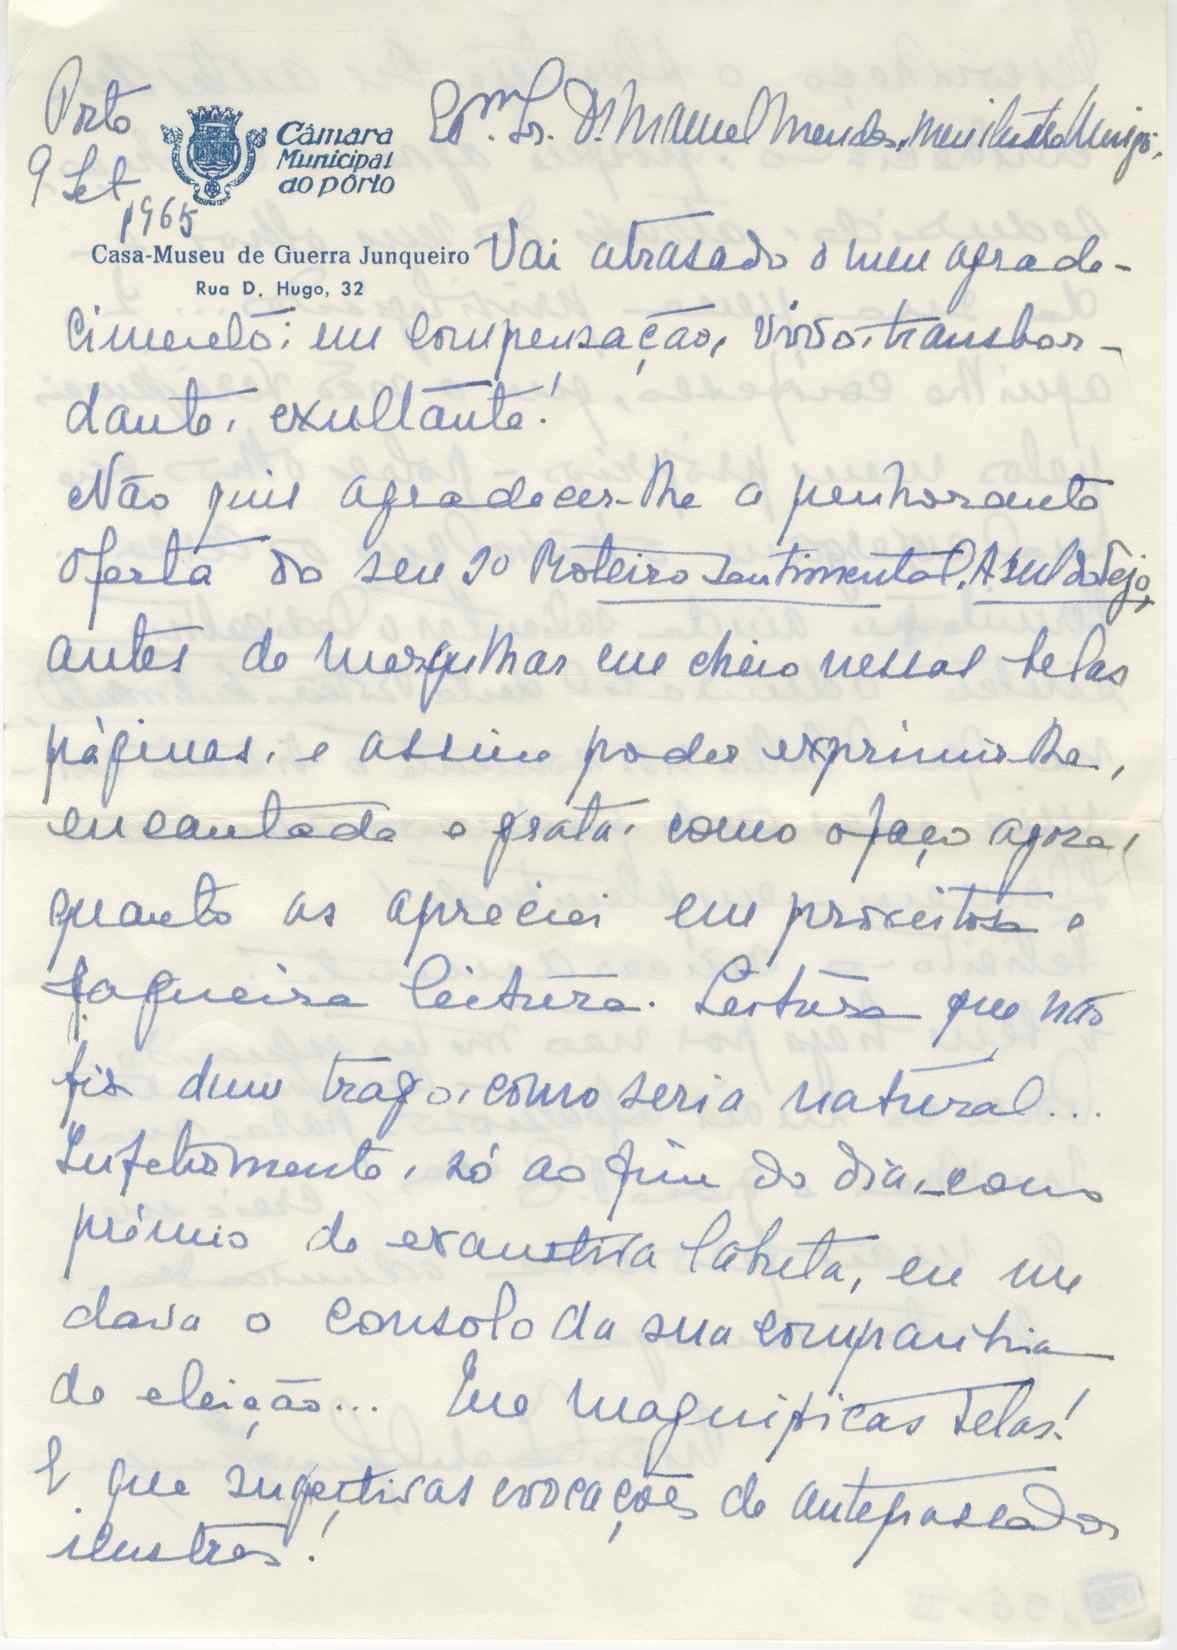 Porto
9 Set
1965
Câmara
Municipal
do pôrto
Casa-Museu de Guerra Junqueiro
Rua D. Hugo, 32
Exmº. Sr. Dr. Manuel Mendes, meu ilustre Amigo:
Vai atrasado o meu agrade-
cimento; em compensação, vivo, transbor-
dante, exultante!
Não quis agradecer-lhe a penhorante
oferta do seu 2º Roteiro sentimental, A Sul do Tejo,
antes de mergulhar em cheio nessas belas
páginas, e assim poder exprimir-lhe,
encantada e grata, como o faço agora,
quanto as apreciei em proveitosa e
fagueira leitura. Leitura que não
fiz dum trago, como seria natural...
Infelizmente, só ao fim do dia, como
prémio de exaustiva labuta, eu me
dava o consolo da sua companhia
de eleição... Que magníficas telas!
E que sugestivas evocações de antepassados
ilustres!